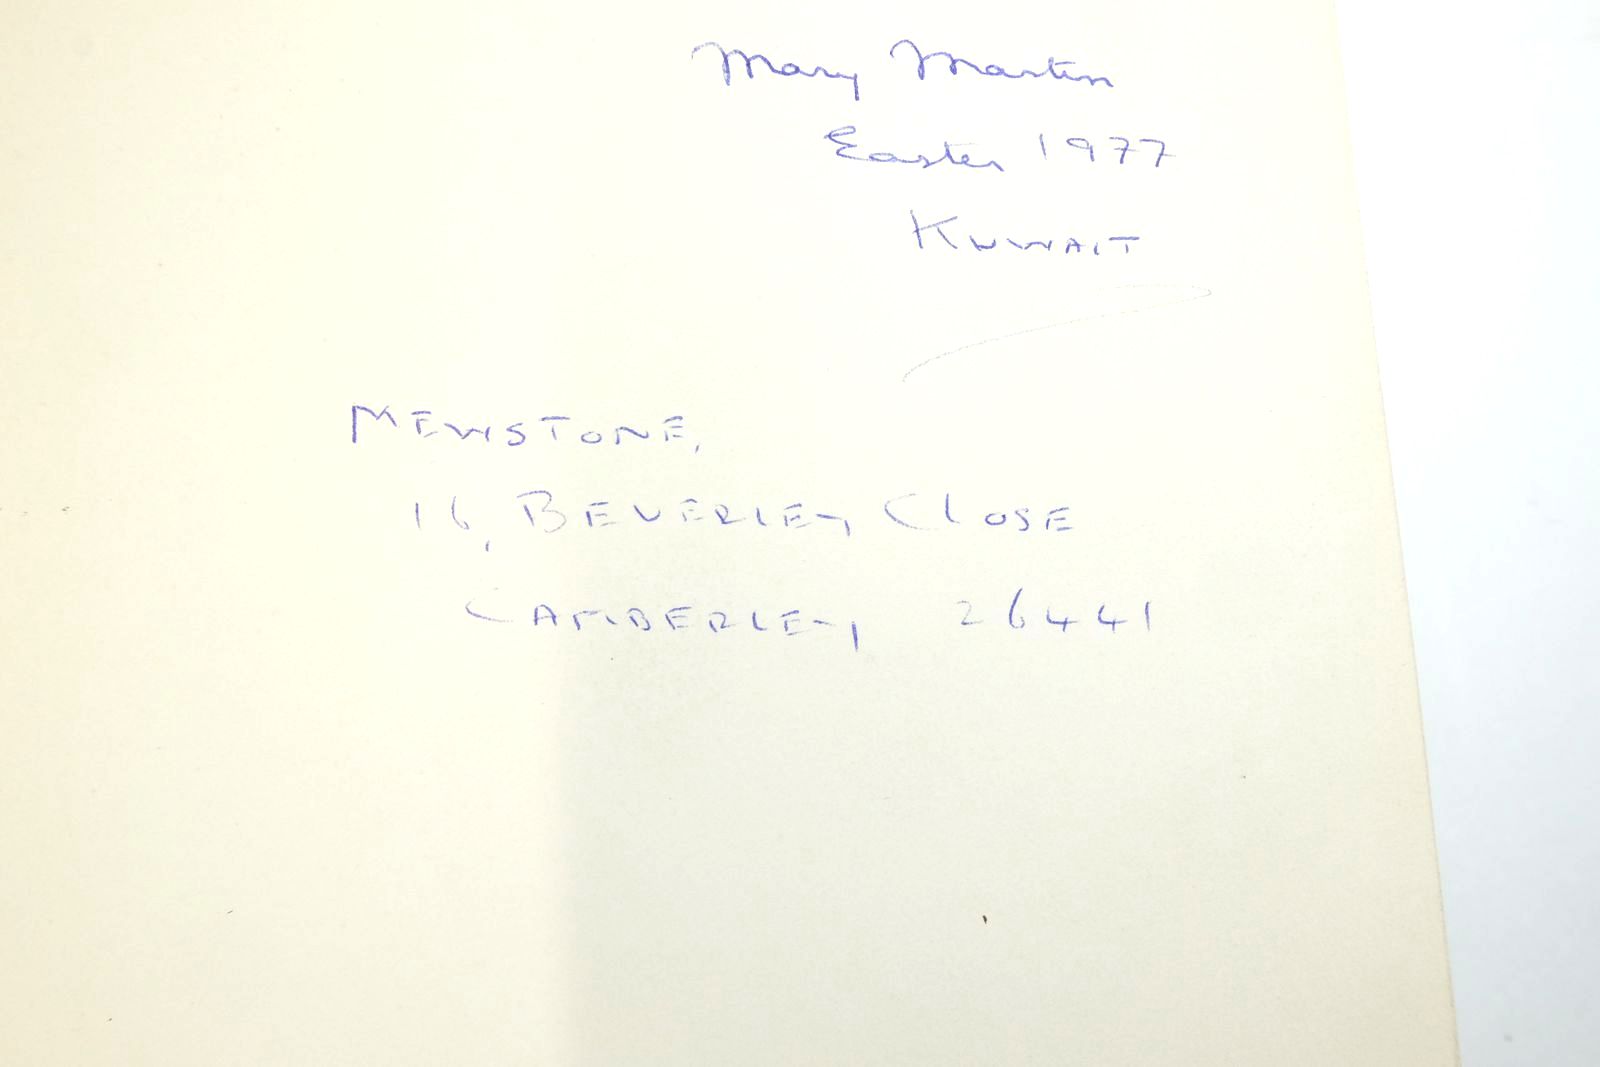 Mary Martin
Easter 1977
KUWAIT
MEWSTONE,
16, BEVERLEY CLOSE
CAMBERLEY 26441